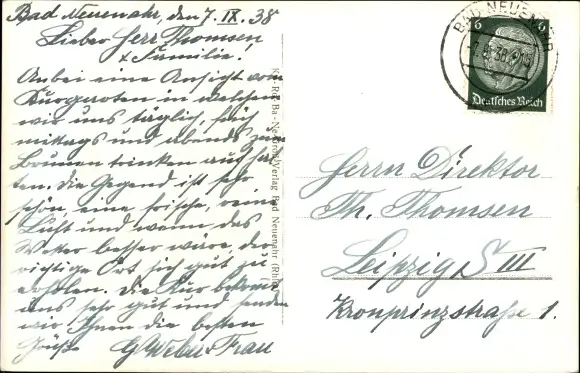 Bad Neuenahr, den 7. IX. 38
Lieber Herr Thomsen
& Familie!
Anbei eine Ansicht vom
Kurgarten in welchem
wir uns täglich, früh
mittags und abends zum
Brunnen trinken aufhal-
ten. Die Gegend ist sehr
schön eine frische, reine
Luft und wenn das
Wetter besser wäre, der
richtige Ort sich gut zu
erholen. Die Kur bekommt
uns sehr gut und senden
wir Ihnen die besten
Grüße G Weber & Frau
Verlag Bad Neuenahr
BAD NEUENAHR
6 6
Deutsches Reich
Herrn Direktor
Th. Thomsen
Leipzig S III
Kronprinzstraße 1.